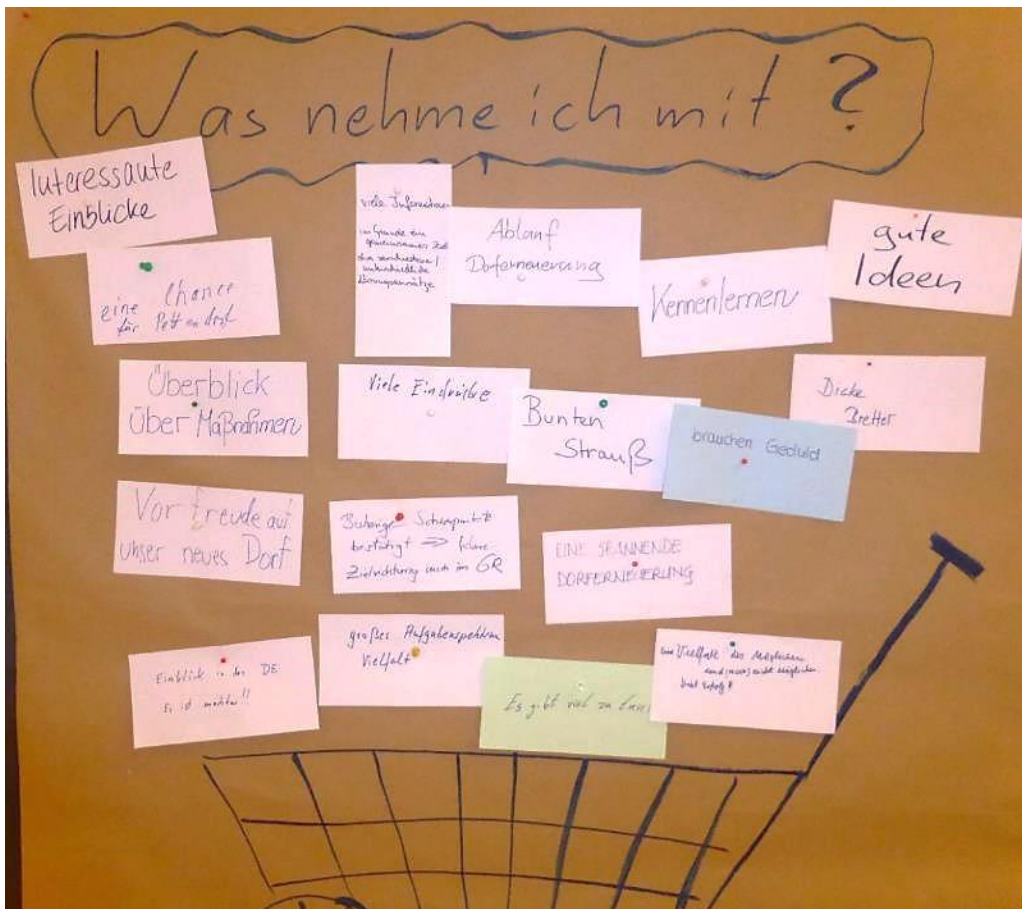 Was nehme ich mit?
Interessante
Einblicke
viele Informationen
im Grunde ein
gemeinsames Ziel
unterschiedliche
Lösungsansätze
Ablauf
Dorferneuerung
Kennenlernen
gute
Ideen
eine Chance
für Pettendorf
Überblick
über Maßnahmen
Viele Eindrücke
Bunten
Strauß
brauchen Geduld
Dicke
Bretter
Vorfreude auf
unser neues Dorf
Bisherige Schwerpunkte
bestätigt ⇒ klare
Zielrichtung auch im GR
EINE SPANNENDE
DORFERNEUERUNG
Einblick in der DE
Es ist machbar!!
großes Aufgabenspektrum
Vielfalt
Es gibt viel zu tun
Vielfalt des Möglichen
und nicht Möglichen